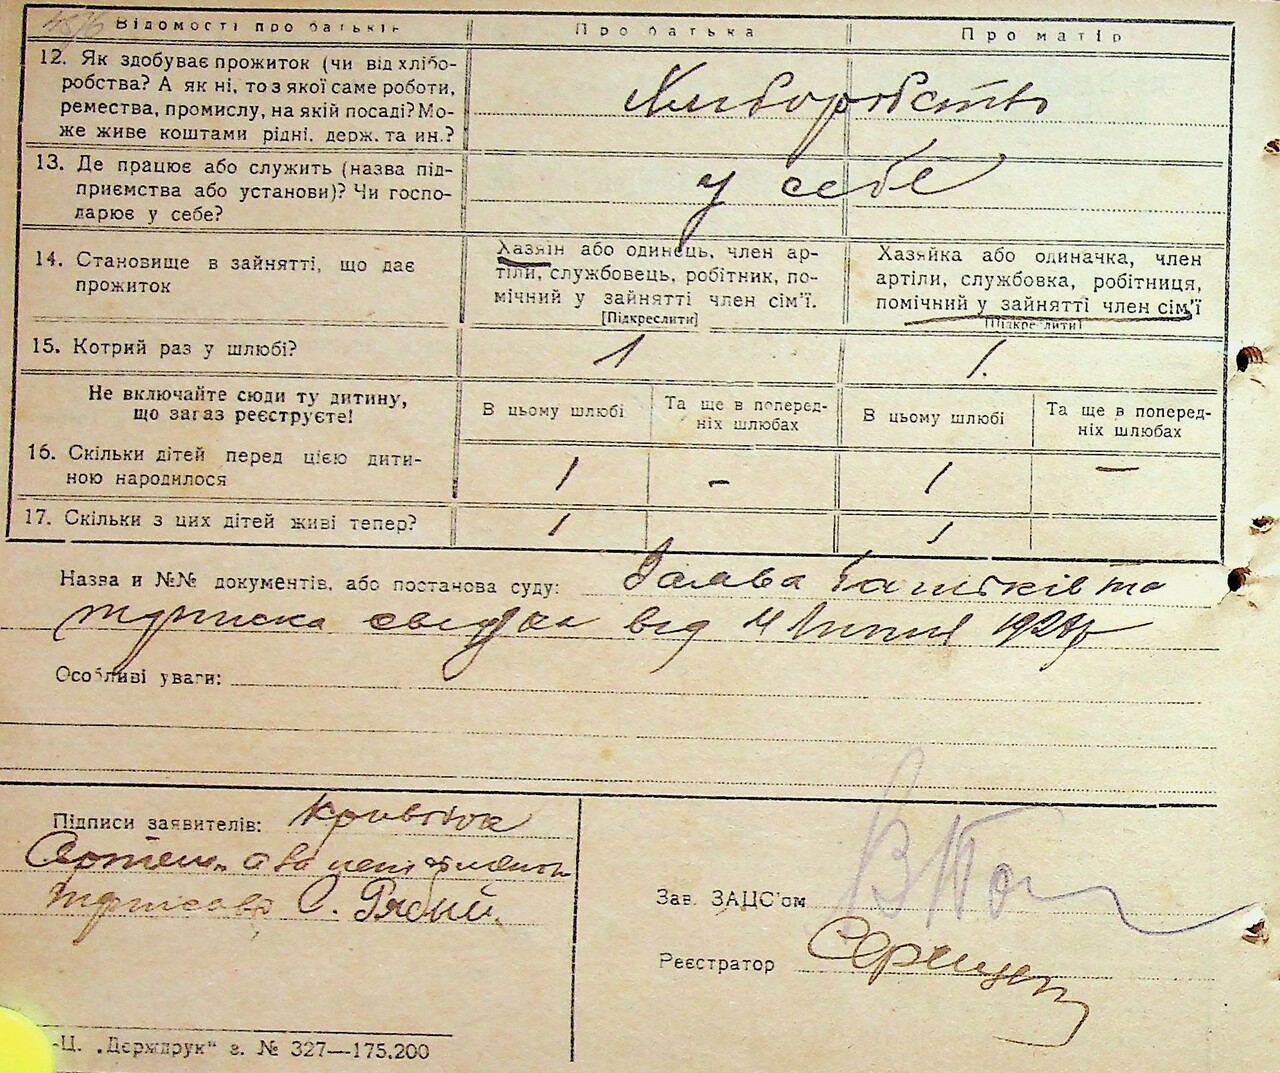 4876
Відомості про батьків
Про батька
Про матір
12. Як здобуває прожиток (чи від хлібо-
робства? А як ні, то з якої саме роботи,
ремества, промислу, на якій посаді? Мо-
же живе коштами рідні, держ. та ин.?
Хліборобство
13. Де працює або служить (назва під-
приємства або установи)? Чи госпо-
дарює у себе?
у себе
14. Становище в зайнятті, що дає
прожиток
Хазяїн або одинець, член ар-
тіли, службовець, робітник, по-
мічний у зайнятті член сім'ї.
[Підкреслити]
Хазяйка або одиначка, член
артіли, службовка, робітниця,
помічний у зайнятті член сім'ї
[Підкреслити]
15. Котрий раз у шлюбі?
1
1.
Не включайте сюди ту дитину,
що зараз реєструєте!
В цьому шлюбі
Та ще в поперед-
ніх шлюбах
В цьому шлюбі
Та ще в поперед-
ніх шлюбах
16. Скільки дітей перед цією дити-
ною народилося
1 - 1 —
17. Скільки з цих дітей живі тепер?
1 1
Назва й №№ документів, або постанова суду: Заява батьків та
підписка свідка від 4 липня
Особливі уваги:
Підписи заявителів:
підписав С. Рябий.
Зав. ЗАЦС'ом
Реєстратор
-Ц. „Держдрук" з. № 327—175.200